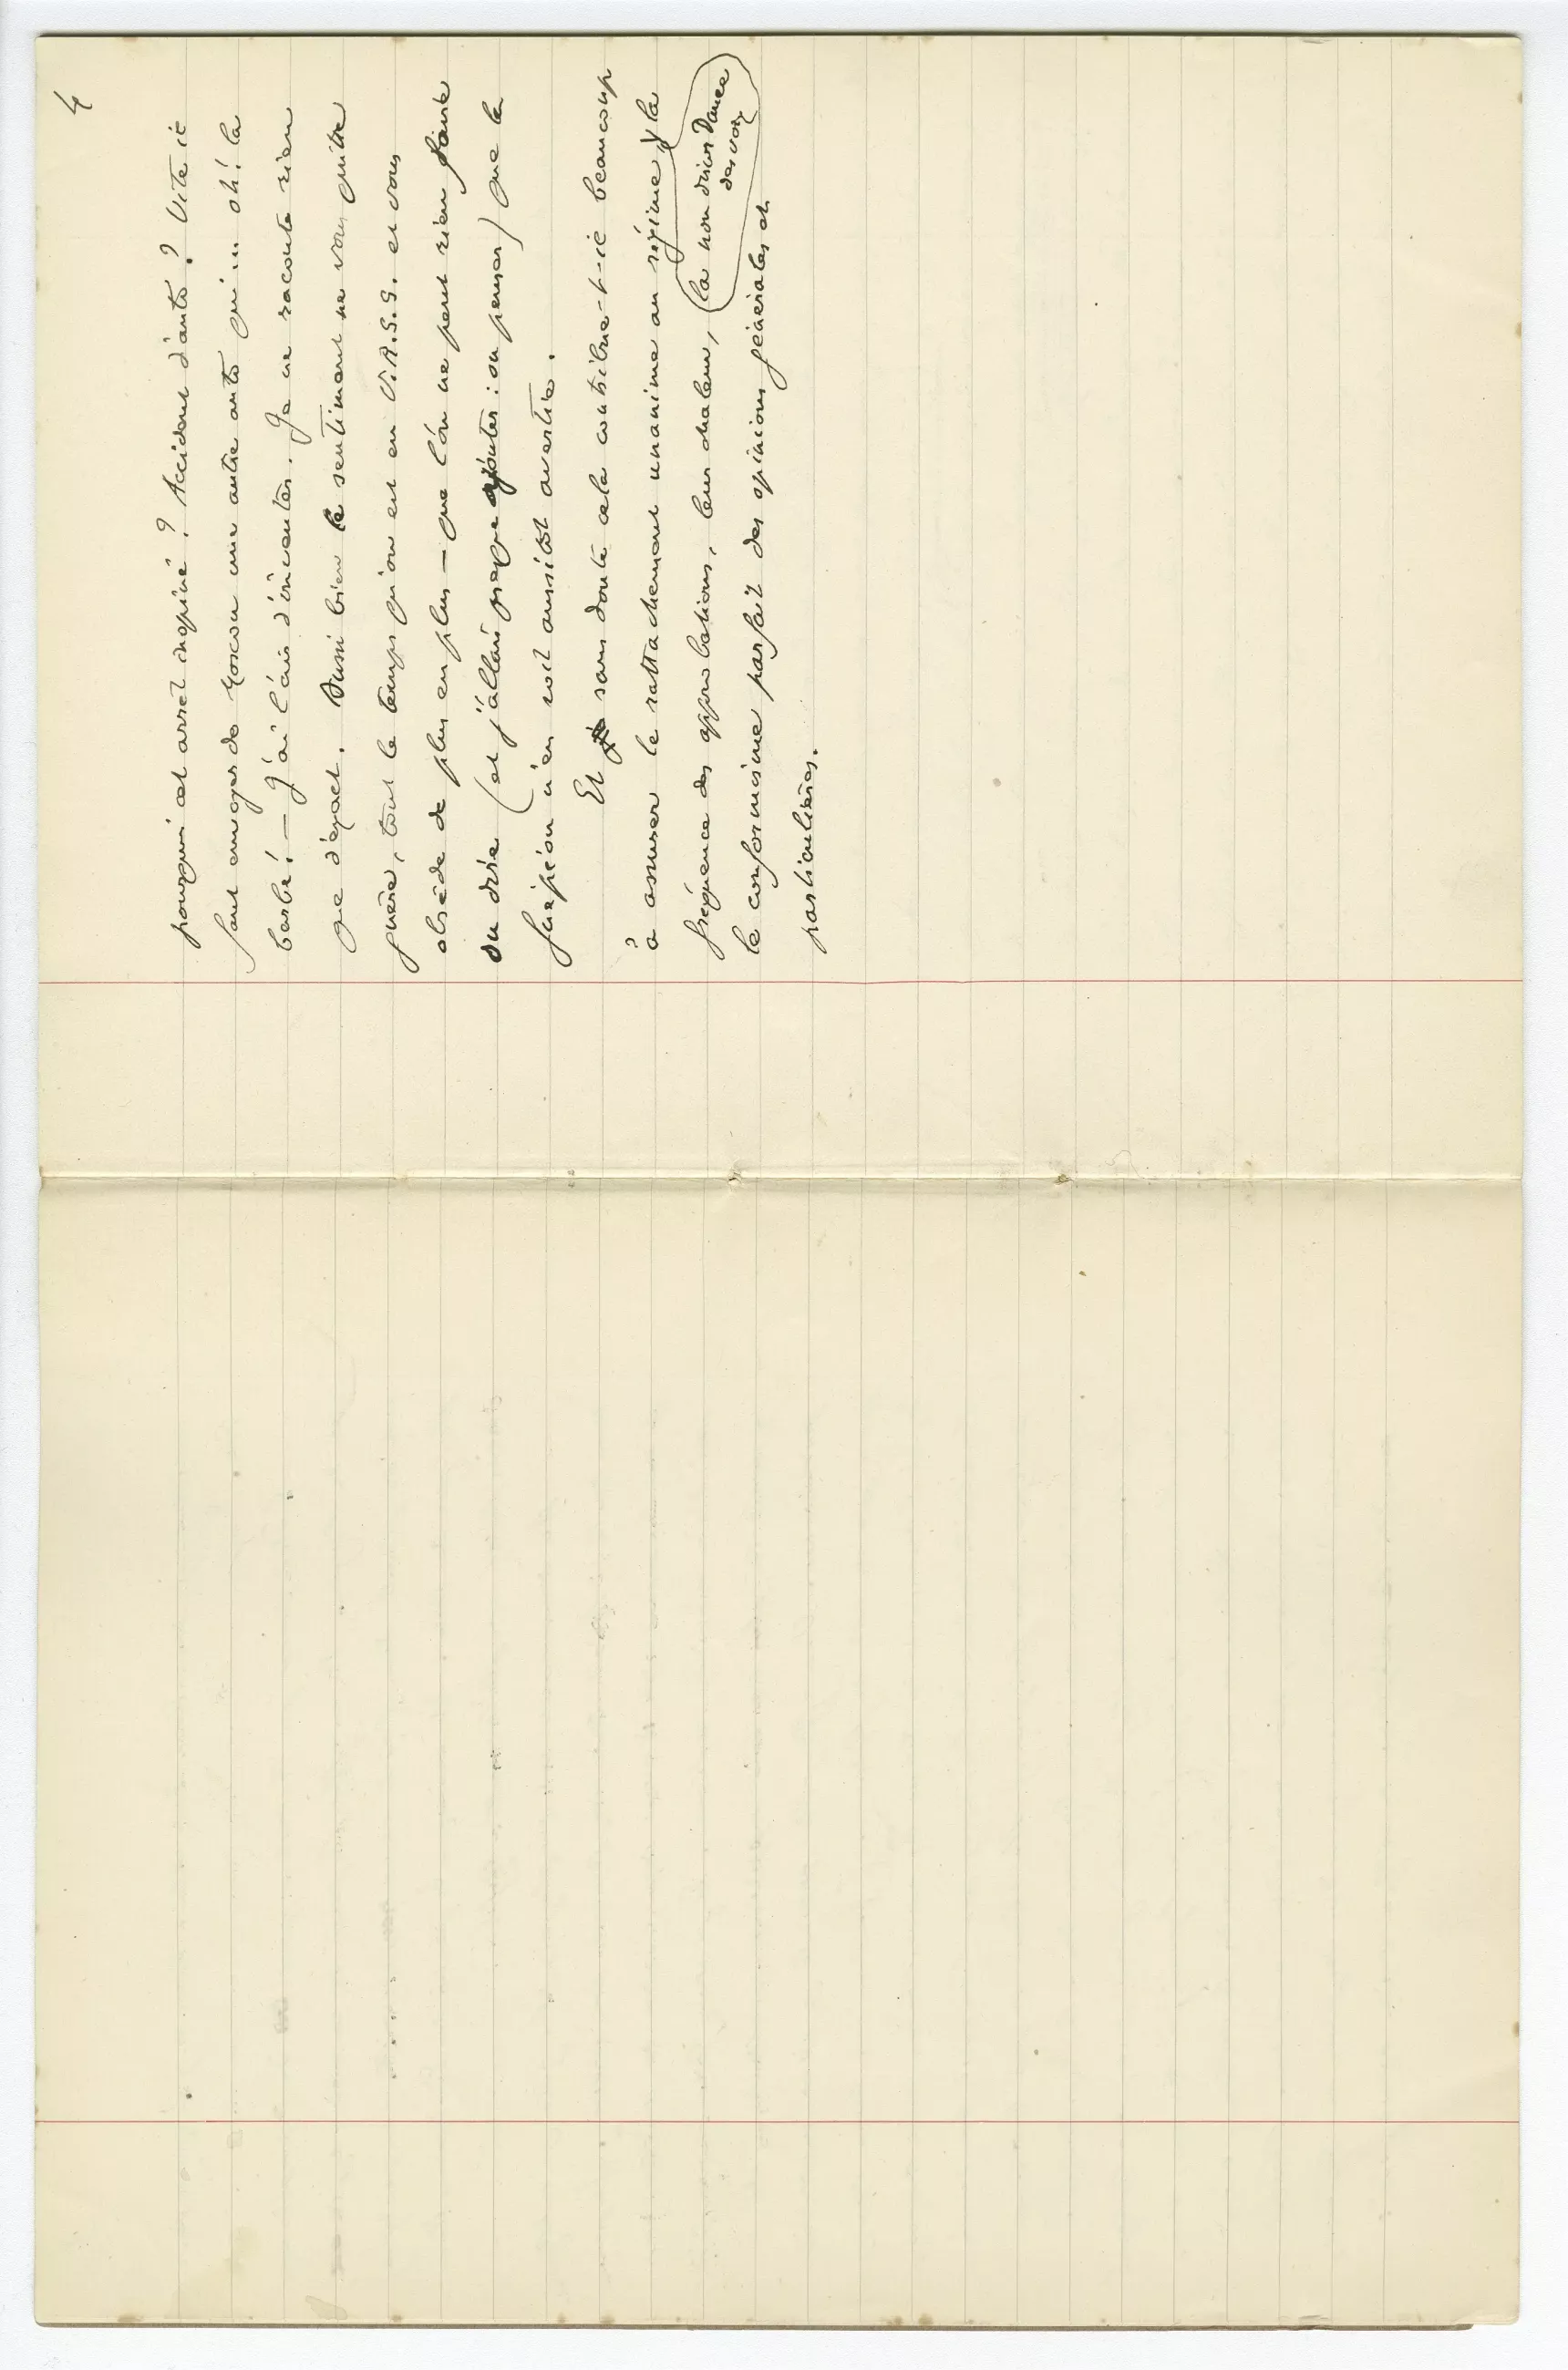 4
pourquoi cet arrêt inopiné ? Accident d'auto ? Vite il
faut envoyer de Moscou une autre auto qui ... oh ! la
barbe ! — J'ai l'air d'inventer. Je ne raconte rien
que d'exact. Aussi bien le sentiment ne vous quitte
guère, tout le temps qu'on est en U.R.S.S. et vous
obsède de plus en plus — que l'on ne peut rien faire
ou dire (et j'allais presque ajouter : ou penser) que la
Guépéou n'en soit aussitôt avertie.
Et sans doute cela contribue-t-il beaucoup
à assurer le rattachement unanime au régime, la
fréquence des approbations, leur chaleur, la non discordance
des voix
le conformisme parfait des opinions générales et
particulières.